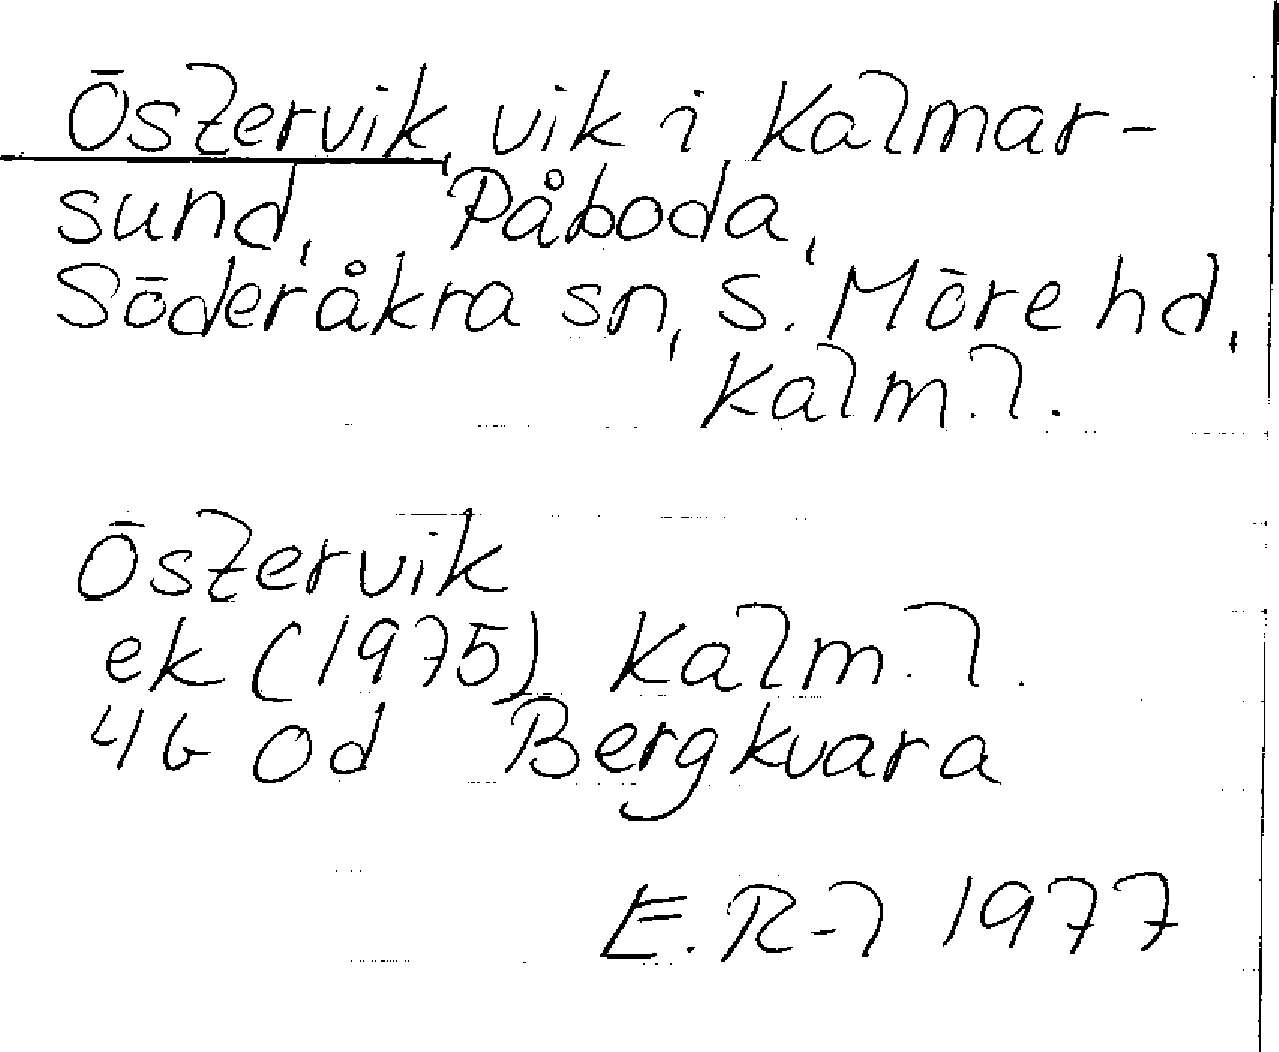 Östervik, vik i Kalmar-
sund, Påboda,
Söderåkra sn, S. Möre hd,
Kalm. l.
Östervik
ek (1975) Kalm. l.
4G od Bergkvara
E. R-l 1977